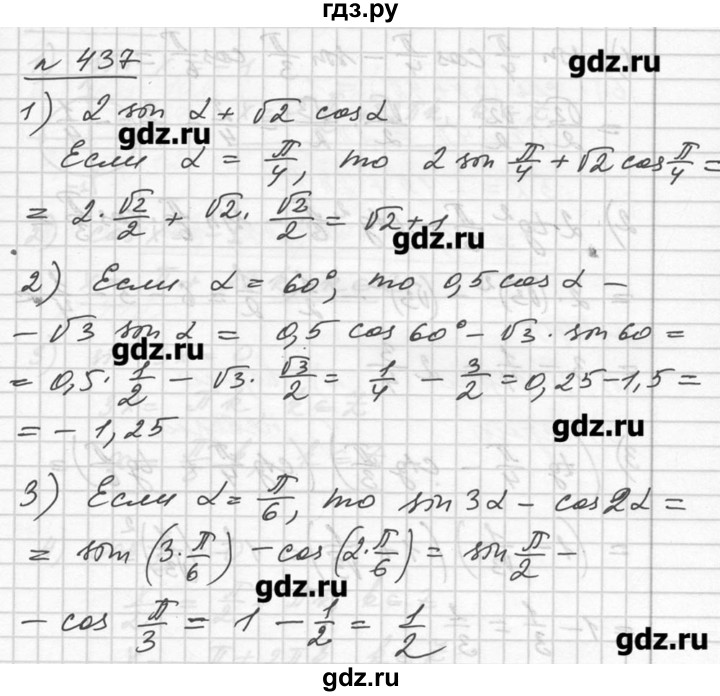 гдз.ру
gdz.ru
n 437
1) 2 sin α + √2 cos α
gdz.ru
Если α = π/4, то 2 sin π/4 + √2 cos π/4 =
= 2 · √2/2 + √2 · √2/2 = √2 + 1
gdz.ru
2) Если α = 60°, то 0,5 cos α –
– √3 sin α = 0,5 cos 60° – √3 · sin 60 =
gdz.ru
= 0,5 · 1/2 – √3 · √3/2 = 1/4 – 3/2 = 0,25 – 1,5 =
= – 1,25
gdz.ru
3) Если α = π/6, то sin 3α – cos 2α =
= sin (3 · π/6) – cos (2 · π/6) = sin π/2 –
gdz.ru
– cos π/3 = 1 – 1/2 = 1/2
gdz.ru
gdz.ru